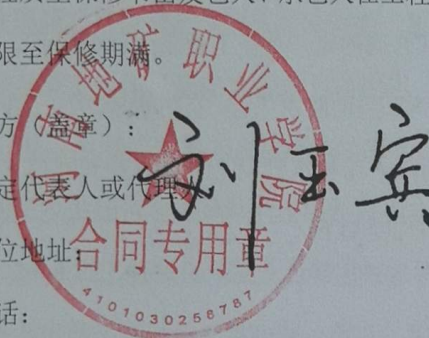 限至保修期满。
方（盖章）：
定代表人或代理人
位地址：
话：
河南地矿职业学院
合同专用章
4101030258787
刘玉宾